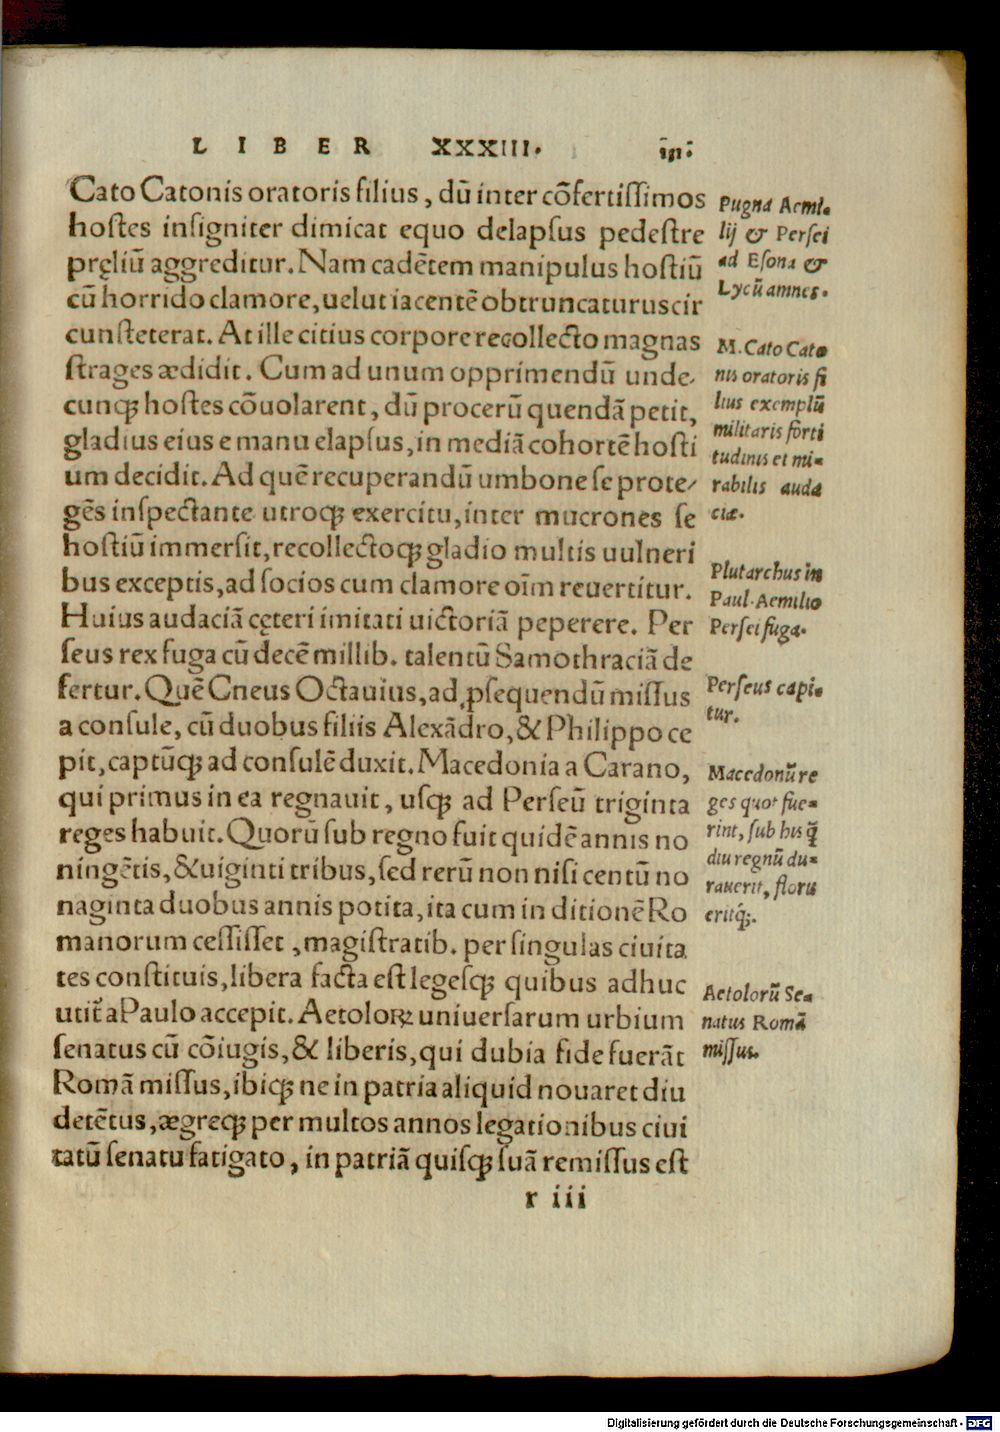 LIBER XXXIII.
Cato Catonis oratoris filius, dū inter cōfertiſſimos
hoſtes inſigniter dimicat equo delapſus pedeſtre
pręliū aggreditur. Nam cadētem manipulus hoſtiū
cū horrido clamore, uelut iacentē obtruncaturus cir
cunſteterat. At ille citius corpore recollecto magnas
ſtrages ædidit. Cum ad unum opprimendū unde⸗
cunqꝫ hoſtes cōuolarent, dū procerū quendā petit,
gladius eius e manu elapſus, in mediā cohortē hoſti
um decidit. Ad quē recuperandū umbone ſe prote⸗
gēs inſpectante utroqꝫ exercitu, inter mucrones ſe
hoſtiū immerſit, recollectoqꝫ gladio multis uulneri
bus exceptis, ad ſocios cum clamore oīm reuertitur.
Huius audaciā cęteri imitati uictoriā peperere. Per
ſeus rex fuga cū decē millib. talentū Samothraciā de
fertur. Quē Cneus Octauius, ad ꝑſequendū miſſus
a conſule, cū duobus filiis Alexādro, & Philippo ce
pit, captūqꝫ ad conſulē duxit. Macedonia a Carano,
qui primus in ea regnauit, uſqꝫ ad Perſeū triginta
reges habuit. Quorū ſub regno fuit quidē annis no
ningētis, & uiginti tribus, ſed rerū non niſi centū no
naginta duobus annis potita, ita cum in ditionē Ro
manorum ceſſiſſet, magiſtratib. per ſingulas ciuita
tes conſtituis, libera facta eſt legeſqꝫ quibus adhuc
utit᷑ a Paulo accepit. Aetoloꝝ uniuerſarum urbium
ſenatus cū cōiugis, & liberis, qui dubia fide fuerāt
Romā miſſus, ibiqꝫ ne in patria aliquid nouaret diu
detētus, ægreqꝫ per multos annos legationibus ciui
tatū ſenatu fatigato, in patriā quiſqꝫ ſuā remiſſus eſt
r iii
Pugna Aemi⸗
lij & Perſei
ad Eſona &
Lycū amnes.
M. Cato Cato
nis oratoris fi
lius exemplū
militaris forti
tudinis et mi⸗
rabilis auda
ciæ.
Plutarchus in
Paul. Aemilio
Perſei fuga.
Perſeus capi⸗
tur.
Macedonū re
ges quot fue⸗
rint, ſub his q̄
diu regnū du⸗
rauerit, floru
eritqꝫ.
Aetolorū Se⸗
natus Romā
miſſus.
Digitalisierung gefördert durch die Deutsche Forschungsgemeinschaft - DFG